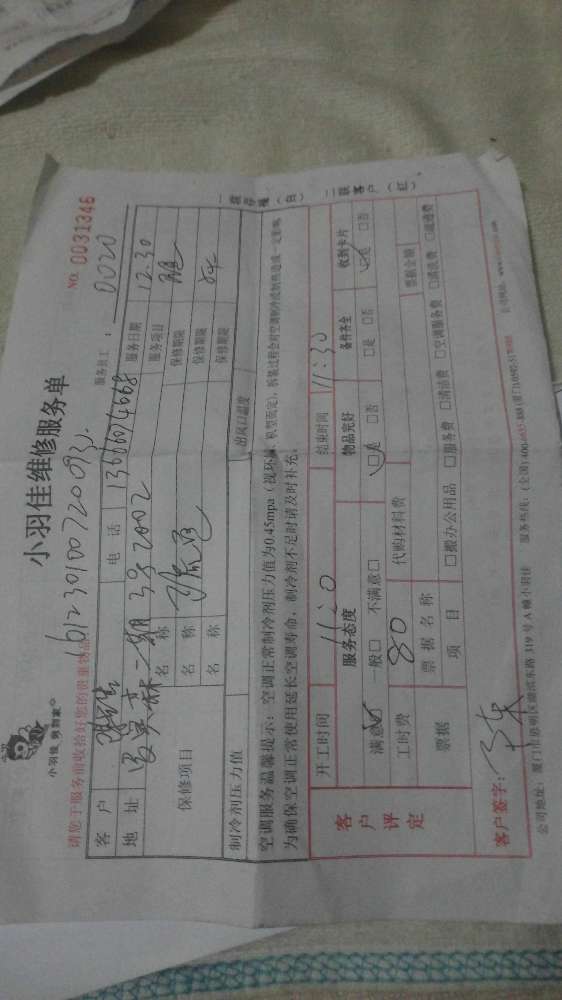 小羽佳 管到家
小羽佳维修服务单
NO. 0031346
请您于服务前收拾好您的贵重物品
1612301007200935
服务员工: 0020
客户
电话 13666094668
服务日期 12.30
地址
二期3号2002
服务项目
保修项目
名称
保修期限
名称
保修期限
名称
保修期限
制冷剂压力值
出风口温度
空调服务温馨提示: 空调正常制冷剂压力值为0.45mpa (视环境、机型而定), 拆装过程会对空调制冷或制热造成一定影响
为确保空调正常使用延长空调寿命, 制冷剂不足时请及时补充。
一联存根(白) 二联客户(红)
客户评定
开工时间 11:20
结束时间 11:30
服务态度
物品完好
备件齐全
收到卡片
满意☑ 一般□ 不满意□
☑是 □否
□是 □否
☑是 □否
工时费 80
代购材料费
票据
票据名称
票据金额
项目
□搬办公用品 □服务费 □清洁费 □空调服务费 □清洗费 □疏通费
客户签字:
公司地址: 厦门市思明区湖滨东路 319 号 A 幢小羽佳
服务热线: (全国)
公司网站: